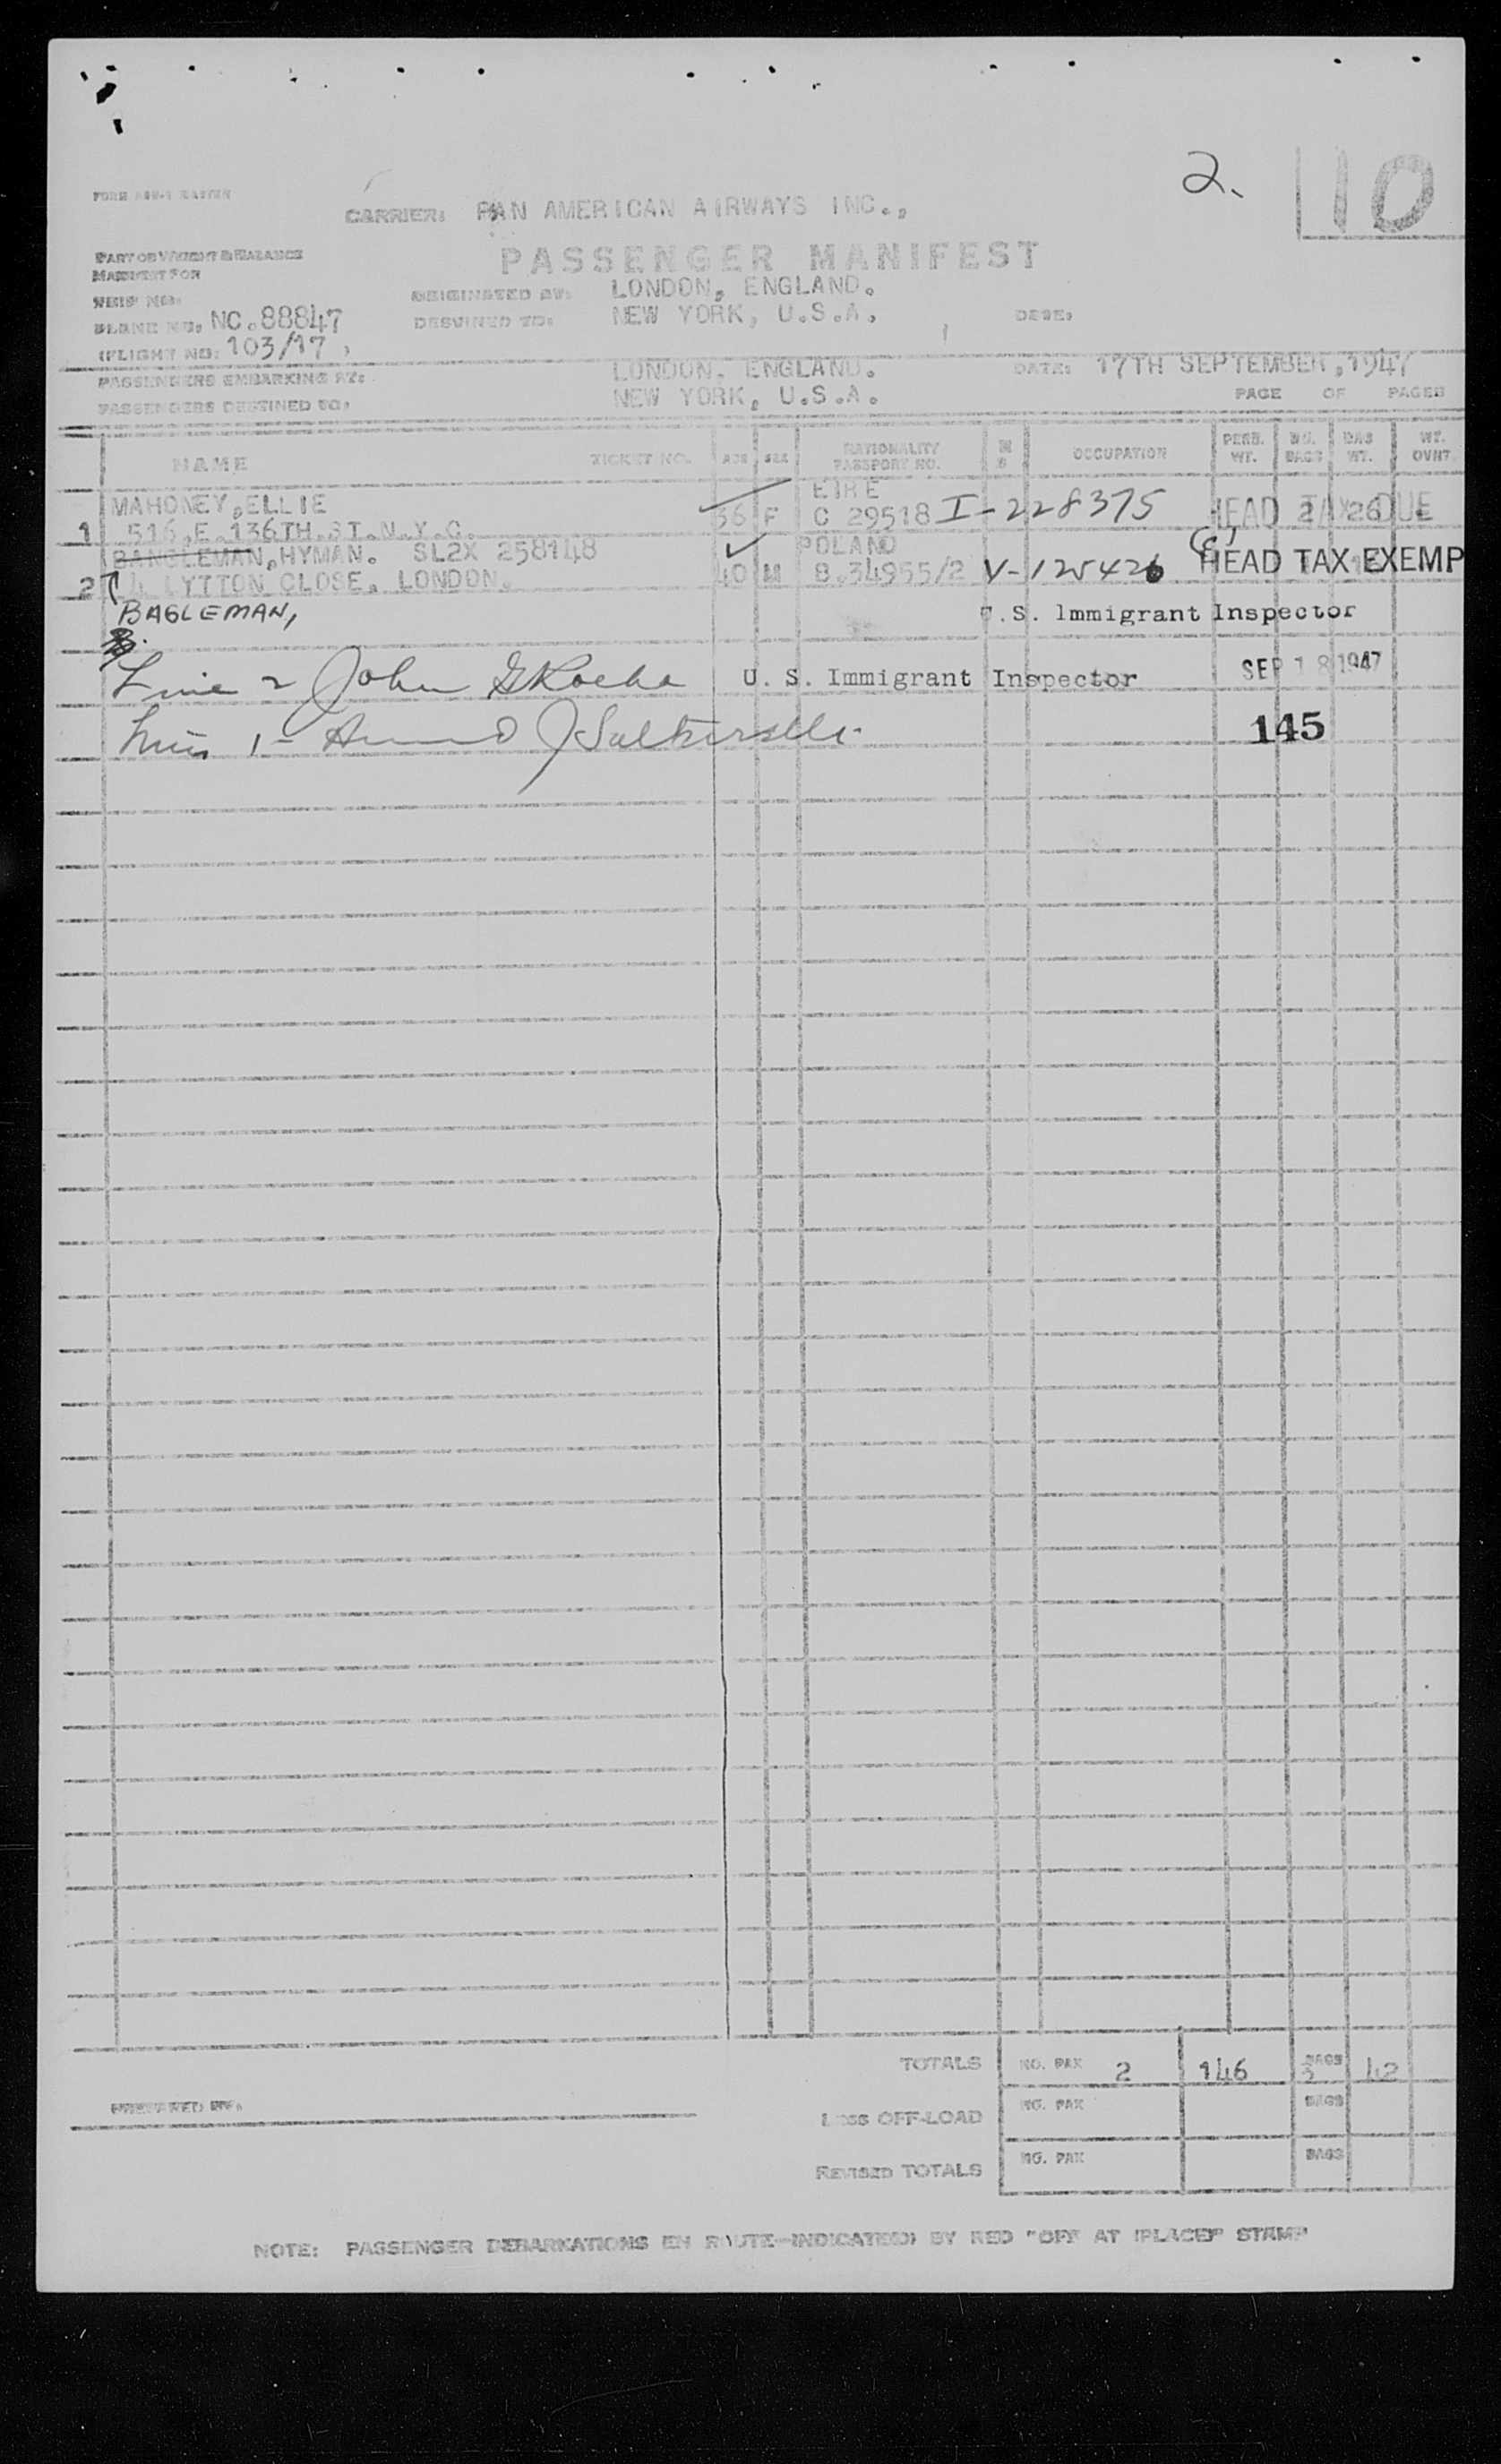 2. 110
CARRIER: PAN AMERICAN AIRWAYS INC.,
PASSENGER MANIFEST
PART OF WEIGHT & BALANCE
MANIFEST FOR
ORIGINATED AT: LONDON, ENGLAND.
PLANE NO. NC.88847 DESTINED TO: NEW YORK, U.S.A.
(FLIGHT NO: 103/17)
PASSENGERS EMBARKING AT: LONDON, ENGLAND. DATE: 17TH SEPTEMBER, 1947
PASSENGERS DESTINED TO: NEW YORK, U.S.A. PAGE OF PAGES
NAME TICKET NO. AGE SEX NATIONALITY PASSPORT NO. OCCUPATION PERS. WT. NO. BAGS BAG WT. WT. OVHT.
MAHONEY,ELLIE EIRE
1 516.E.136TH.ST.N.Y.C. 36 F C 29518 I-228375 HEAD TAX DUE 2 26
BANGLEMAN,HYMAN. SL2X 258148 POLAND
2 4 LYTTON CLOSE, LONDON. 40 M 8.34955/2 V-125426 HEAD TAX EXEMP
BAGLEMAN, U.S. Immigrant Inspector
Line 2 John G Roche U. S. Immigrant Inspector SEP 18 1947
Line 1- 145
TOTALS NO. PAX 2 146 BAGS 42
LESS OFF-LOAD NO. PAX BAGS
REVISED TOTALS NO. PAX BAGS
PREPARED BY:
NOTE: PASSENGER DEBARKATIONS EN ROUTE INDICATED BY RED "OFF AT (PLACE)" STAMP